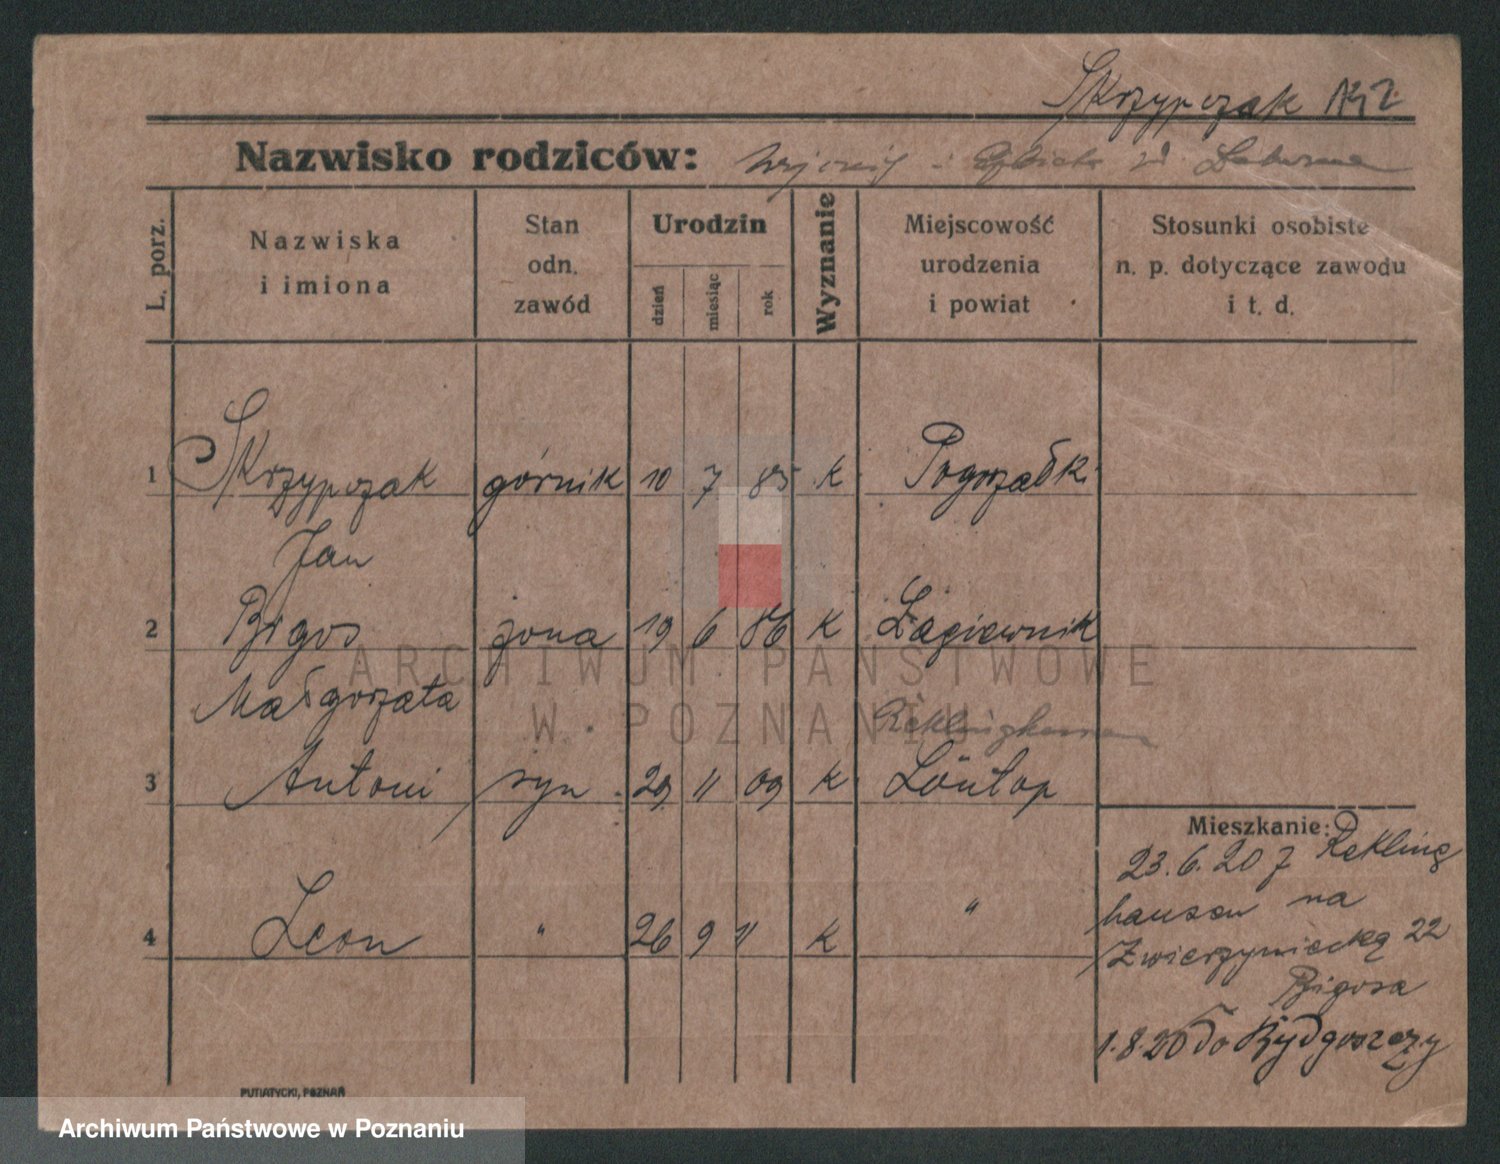 Skrzypczak
Nazwisko rodziców:
L. porz.
Nazwiska
i imiona
Stan
odn.
zawód
Urodzin
dzień
miesiąc
rok
Wyznanie
Miejscowość
urodzenia
i powiat
Stosunki osobiste
n. p. dotyczące zawodu
i t. d.
1 Skrzypczak górnik 10 7 85 k
Jan
2 Bigos żona 19 6 86 k Łagiewnik
Małgorzata
Reklinghausen
3 Antoni syn 29 11 09 k
4 Leon " 26 9 11 k "
Mieszkanie:
23.6.20 z Rekling
hausen na
Zwierzyniecką 22
Bigosa
1.8.20 do Bydgoszczy
PUTIATYCKI, POZNAŃ
ARCHIWUM PAŃSTWOWE
W POZNANIU
Archiwum Państwowe w Poznaniu